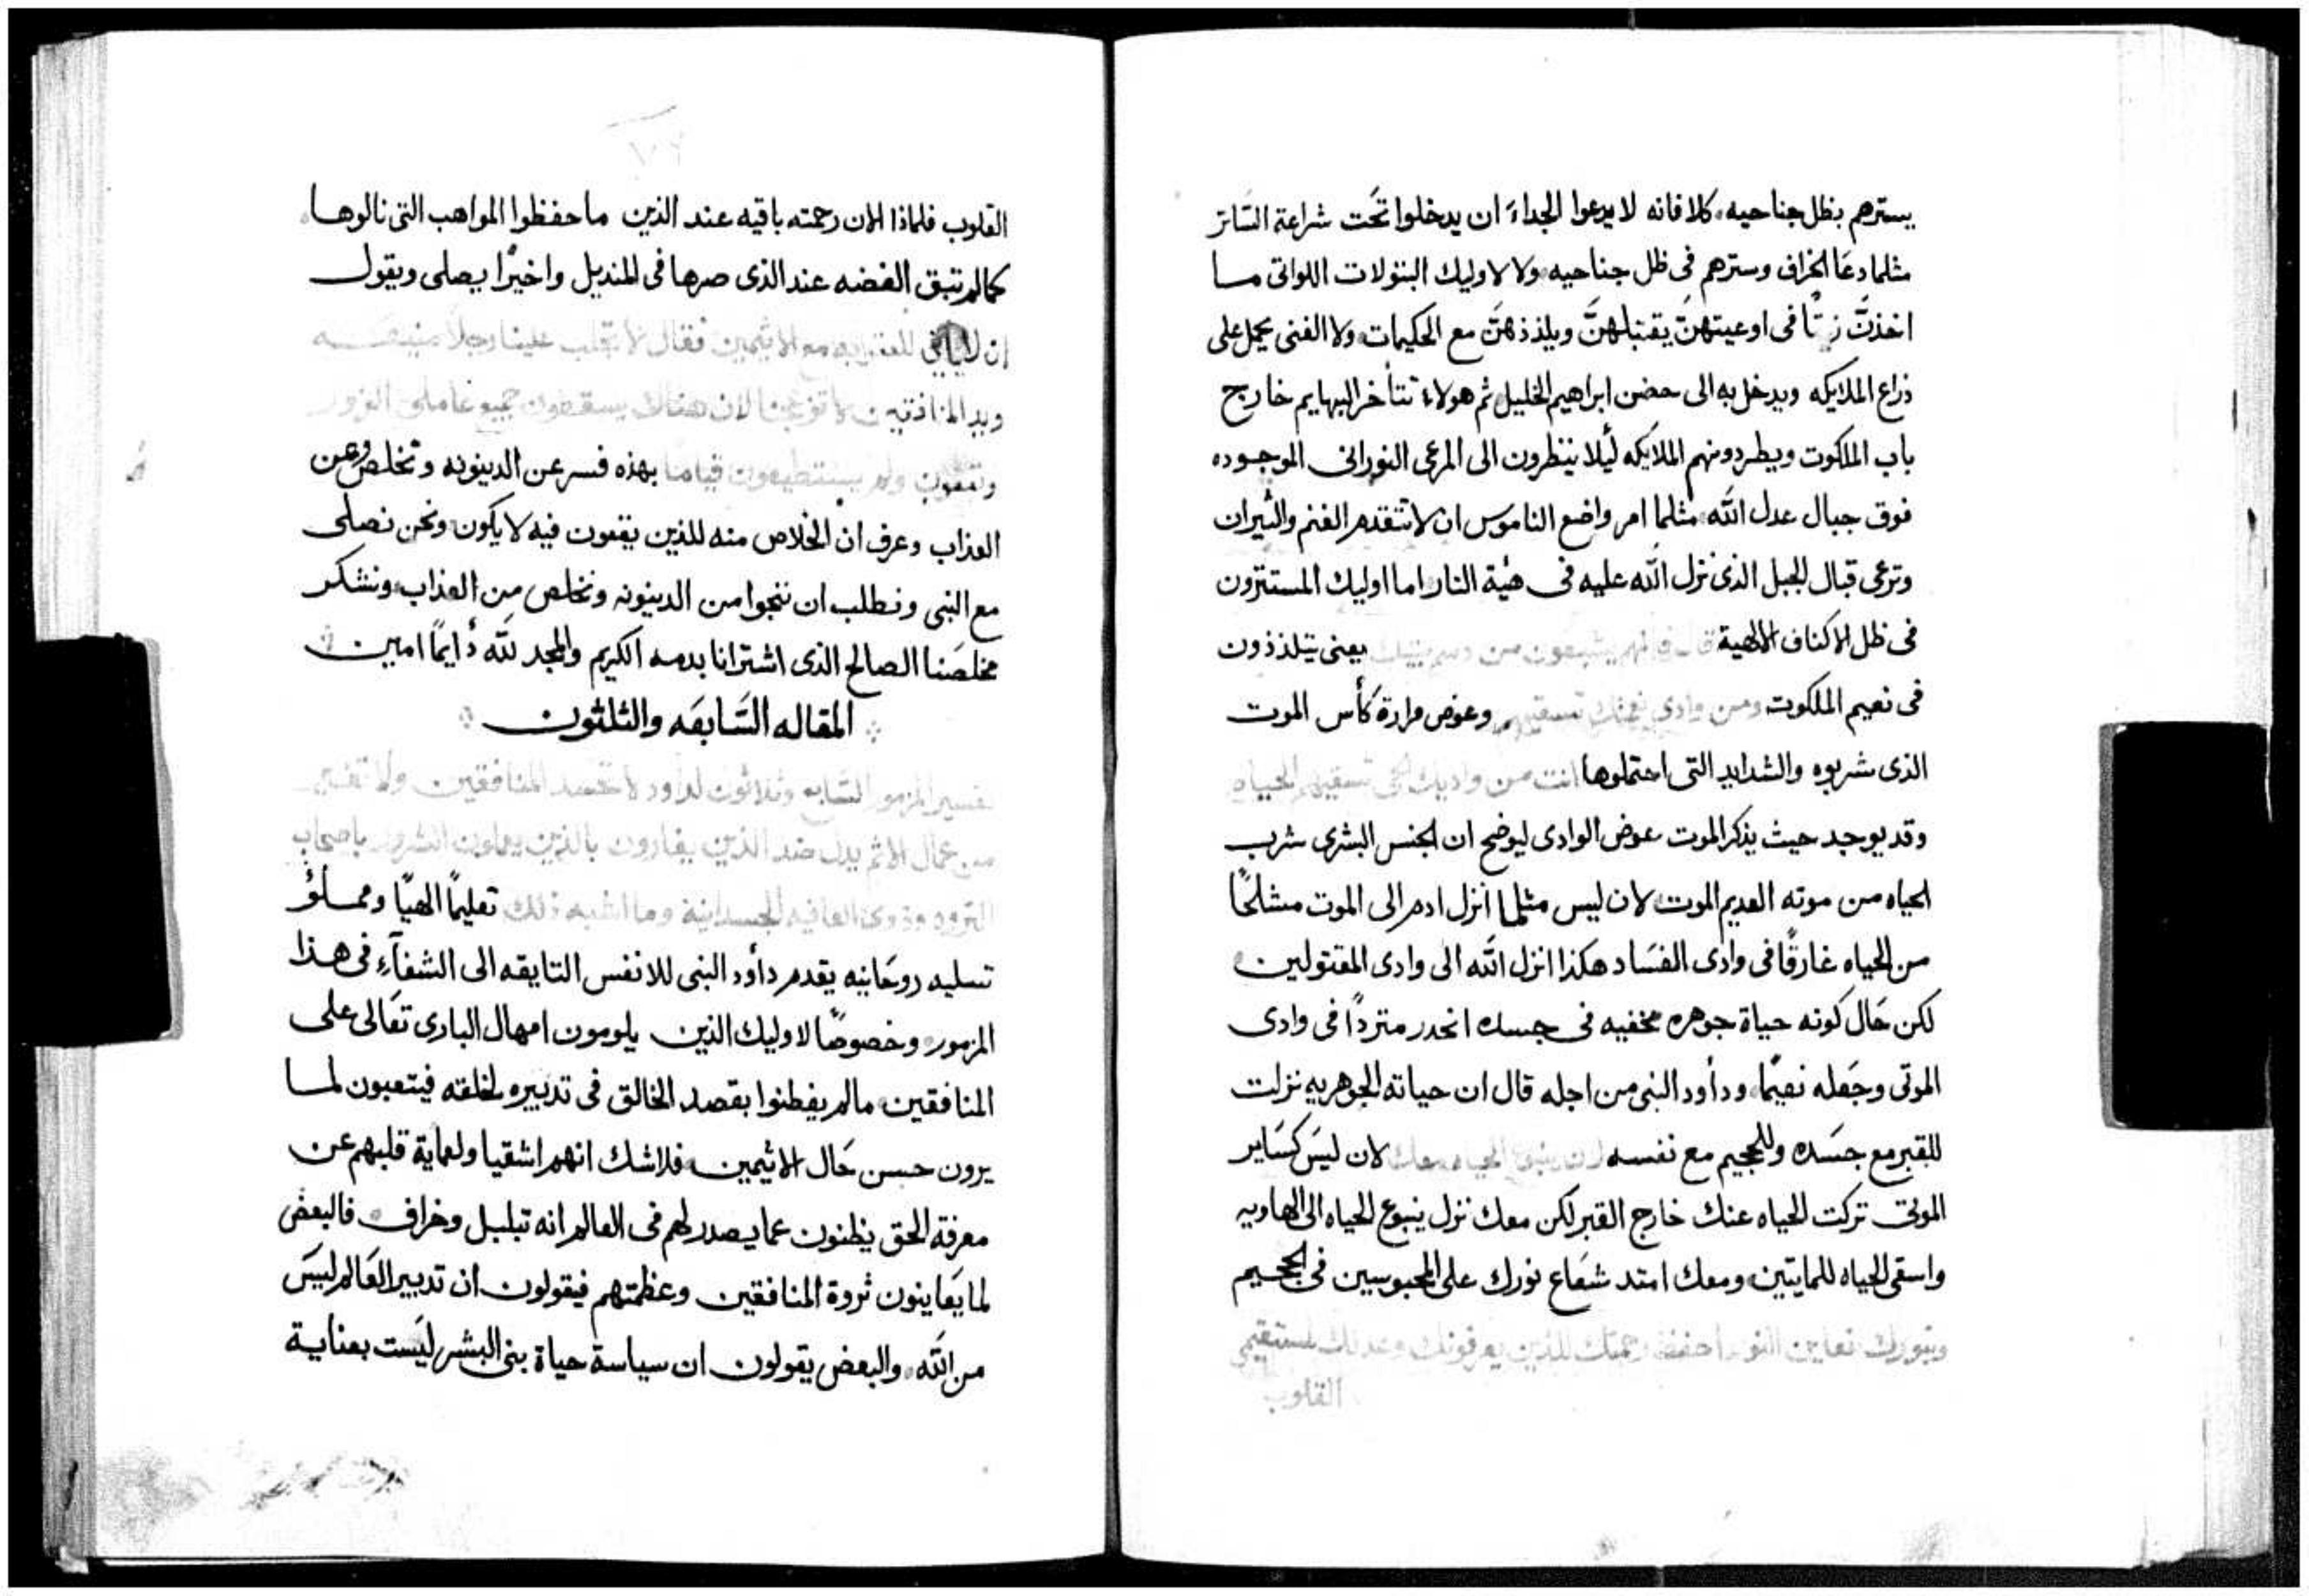 يسترهم بظل جناحيه. كلا فانه لا يدعوا الجداء ان يدخلوا تحت شراعة الساتر
مثلما دعا الخراف وسترهم فى ظل جناحيه ولا لاوليك البتولات اللواتى مـا
اخذت زيتًا فى اوعيتهن يقتبلهن ويلذذهن مع الحكيمات ولا الغنى يحمل على
ذراع الملايكه ويدخل به الى حضن ابراهيم الخليل ثم هولاء تتأخر البهايم خارج
باب الملكوت ويطردونهم الملايكه ليلا ينظرون الى المرعى النورانى الموجوده
فوق جبال عدل الله مثلما امر واضع الناموس ان لا تتقدم الغنم والثيران
وترعى قبال الجبل الذى نزل الله عليه فى هية النار اما اوليك المستترون
فى ظل الاكناف الالهية قال فانهم يشبعون من دسم بيتك يعنى يتلذذون
فى نعيم الملكوت ومن وادى نعمتك تسقيهم وعوض مرارة كأس الموت
الذى شربوه والشدايد التى احتملوها انت من واديك الحى تسقيهم الحياه
وقد يوجد حيث يذكر الموت عوض الوادى ليوضح ان الجنس البشرى شرب
الحياه من موته العديم الموت لان ليس مثلما انزل ادم الى الموت مشلحًا
من الحياه غارقًا فى وادى الفساد هكذا انزل الله الى وادى المقتولين
لكن حال كونه حياة جوهره مخفيه فى جسده انحدر متردًا فى وادى
الموتى وجعله نعيمًا ودأود النبى من اجله قال ان حياته الجوهريه نزلت
للقبر مع جسده وللجحيم مع نفسه لان ينبوع الحياه معك لان ليس كساير
الموتى تركت الحياه عنك خارج القبر لكن معك نزل ينبوع الحياه الى الهاويه
واسقى الحياه للمايتين ومعك امتد شعاع نورك على المحبوسين فى الجحيم
وبنورك نعاين النور احفظ رحمتك للذين يعرفونك وعدلك لمستقيمى
القلوب
القلوب فلماذا الان رحمته باقيه عند الذين ما حفظوا المواهب التى نالوها
كما لم تبق الفضه عند الذى صرها فى المنديل واخيرًا يصلى ويقول
ان للعقوبه مع الاثيمين فقال لا تجلب علينا رجل
ويد المنافقين لا تزعجنا لان هناك يسقطون جميع عاملى الزور
ولم يستطيعون قياما بهذه فسر عن الدينونه وتخلص وعن
العذاب وعرف ان الخلاص منه للذين يقعون فيه لا يكون ونحن نصلى
مع النبى ونطلب ان ننجوا من الدينونه ونخلص من العذاب ونشكر
مخلصنا الصالح الذى اشترانا بدمه الكريم والمجد لله دأيمًا امين
المقاله السابعه والثلثون
تفسير المزمور السابع وثلاثون لداود لا تحسد المنافقين ولا
من عمال الاثم يدل ضد الذين يغارون بالذين يعملون الشرور باصحاب
الثروه وذوى العافيه الجسدانية وما اشبه ذلك تعليمًا الهيًا ومملؤ
تسليه روحانيه يقدم دأود النبى للانفس التايقه الى الشفآء فى هـذا
المزمور وخصوصًا لاوليك الذين يلومون امهال البارى تعالى على
المنافقين مالم يفطنوا بقصد الخالق فى تدبيره لخلقته فيتعبون لمـا
يرون حسن حال الاثيمين فلاشك انهم اشقيا ولعماية قلبهم عن
معرفة الحق يظنون عما يصدر لهم فى العالم انه تبلبل وخراف فالبعض
لما يعاينون ثروة المنافقين وعظمتهم فيقولون ان تدبير العالم ليس
من الله والبعض يقولون ان سياسة حياة بنى البشر ليست بعناية